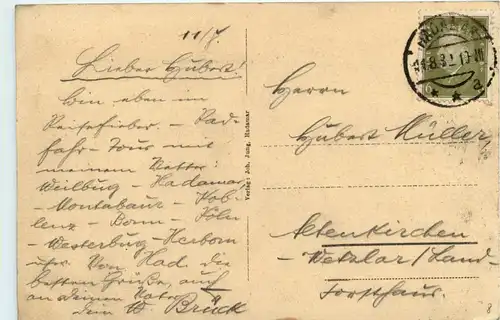 11/7.
Lieber Hubert!
Bin eben im
Reisefieber. – Rad-
fahr-Tour mit
meinem Vetter:
Weilbug – Hadamar,
– Montabaur – Kob-
lenz – Bonn – Köln
– Westerbug – Herborn
usw. Von Had. die
besten Grüße, auch
an deinen Vater
dein W. Brück
Verlag: Joh. Jung, Hadamar
HADAMAR
6
a
Herrn
Hubert Müller,
Altenkirchen
– Wetzlar/Land –
Forsthaus.
8